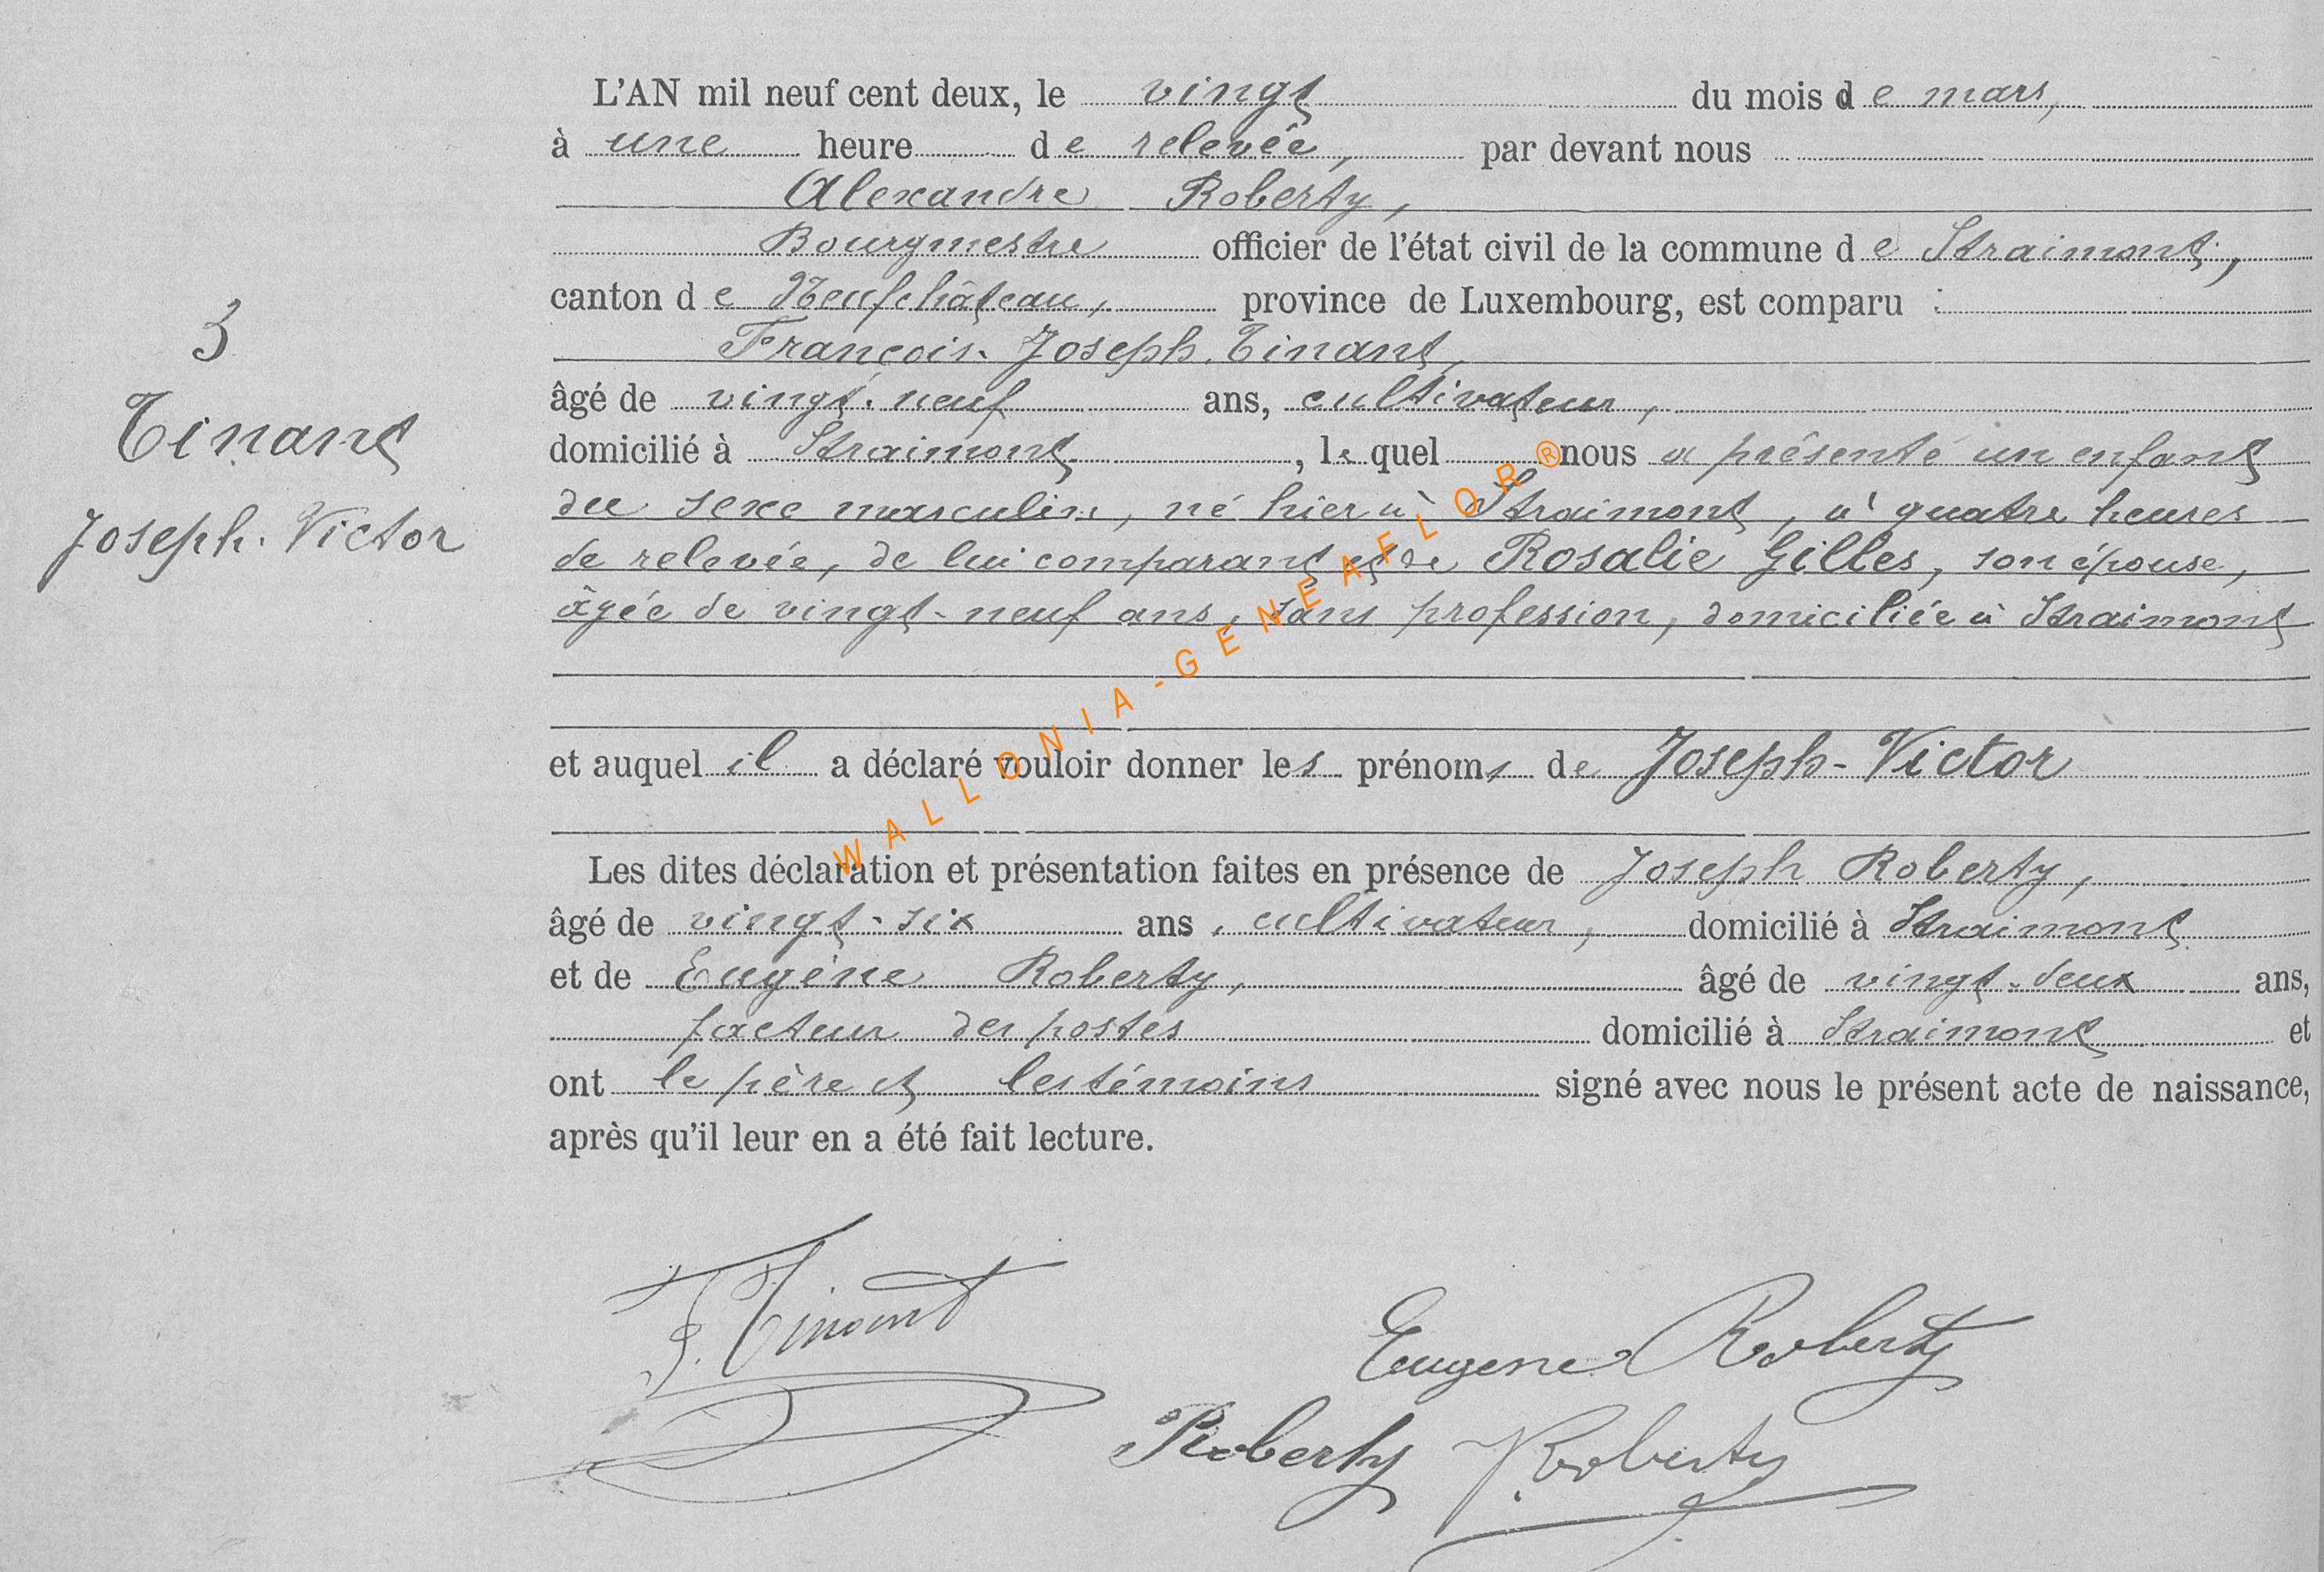 L'AN mil neuf cent deux, le vingt du mois de mars,
à une heure de relevée, par devant nous
Alexandre Roberty,
Bourgmestre officier de l'état civil de la commune de Straimont,
canton de Neufchâteau, province de Luxembourg, est comparu :
François-Joseph Tinant,
âgé de vingt-neuf ans, cultivateur,
domicilié à Straimont, lequel nous a présenté un enfant
du sexe masculin, né hier à Straimont, à quatre heures
de relevée, de lui comparant et de Rosalie Gilles, son épouse,
âgée de vingt-neuf ans, sans profession, domiciliée à Straimont
et auquel il a déclaré vouloir donner les prénoms de Joseph-Victor
Les dites déclaration et présentation faites en présence de Joseph Roberty,
âgé de vingt-six ans, cultivateur, domicilié à Straimont
et de Eugène Roberty, âgé de vingt-deux ans,
facteur des postes domicilié à Straimont et
ont le père et les témoins signé avec nous le présent acte de naissance,
après qu'il leur en a été fait lecture.
3
Tinant
Joseph-Victor
WALLONIA-GENEAFLOR®
J. Tinant
Eugene Roberty
Roberty
Roberty